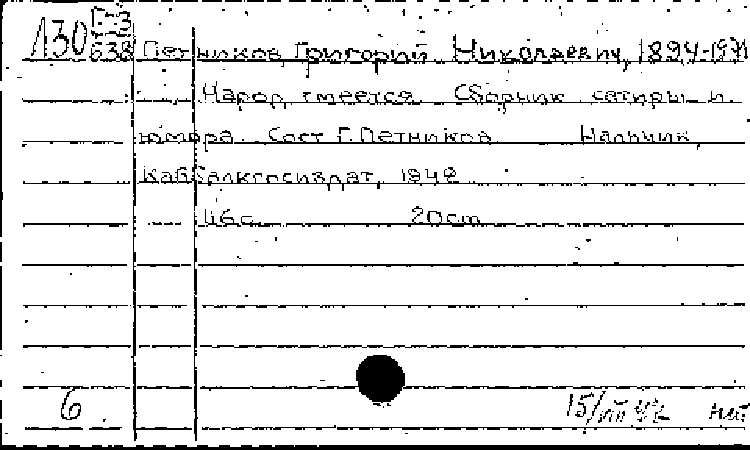 130 Г-3
638 Петников Григорий Николаевич, 1894-1971
Народ смеется Сборник сатиры и
юмора. Сост Г. Петников Нальчик,
Каббалкгосиздат, 1942
46с 20cm
6 15/VII 42